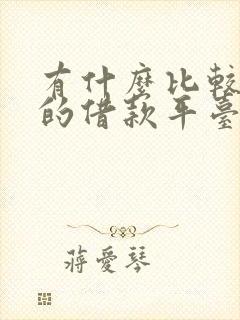 有什麼比較
的借款平臺
蔣愛琴